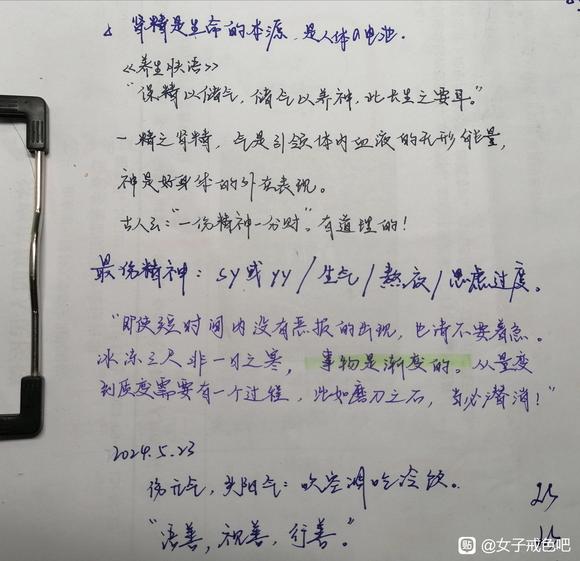 肾精是生命的本源，是人体の电池.
《养生快语》
"保精以储气，储气以养神，此长生之要耳。"
一精之肾精，气是引领体内血液的无形能量，
神是好身体的外在表现。
古人云："一份精神一分财"。有道理的！
最伤精神：sy或yy/生气/熬夜/思虑过度。
"即使短时间内没有恶报的出现，也请不要着急。
冰冻三尺非一日之寒，事物是渐变的。从量变
到质变需要有一个过程，此如磨刀之石，岁必潜消！"
2024.5.23
伤元气，失阳气：吹空调吃冷饮。
"语善，视善，行善。"
贴 @女子戒色吧